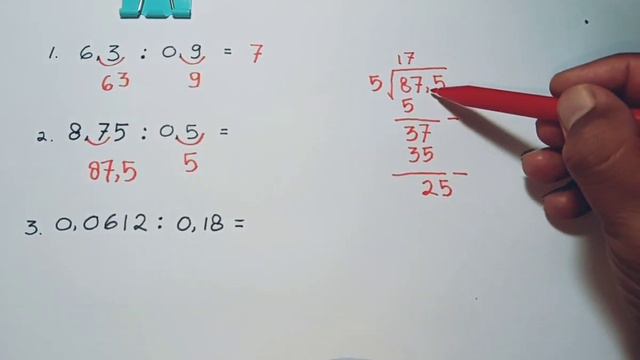 1. 6,3 : 0,9 = 7
63 9
2. 8,75 : 0,5 =
87,5 5
3. 0,0612 : 0,18 =
17
5 √87,5
5
37
35
25